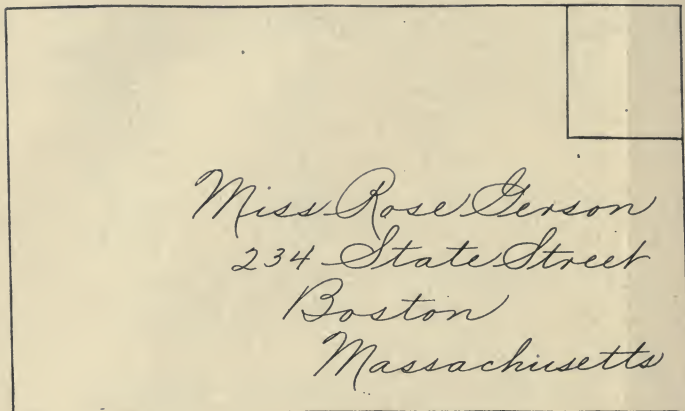 Miss Rose Gerson
234 State Street
Boston
Massachusetts